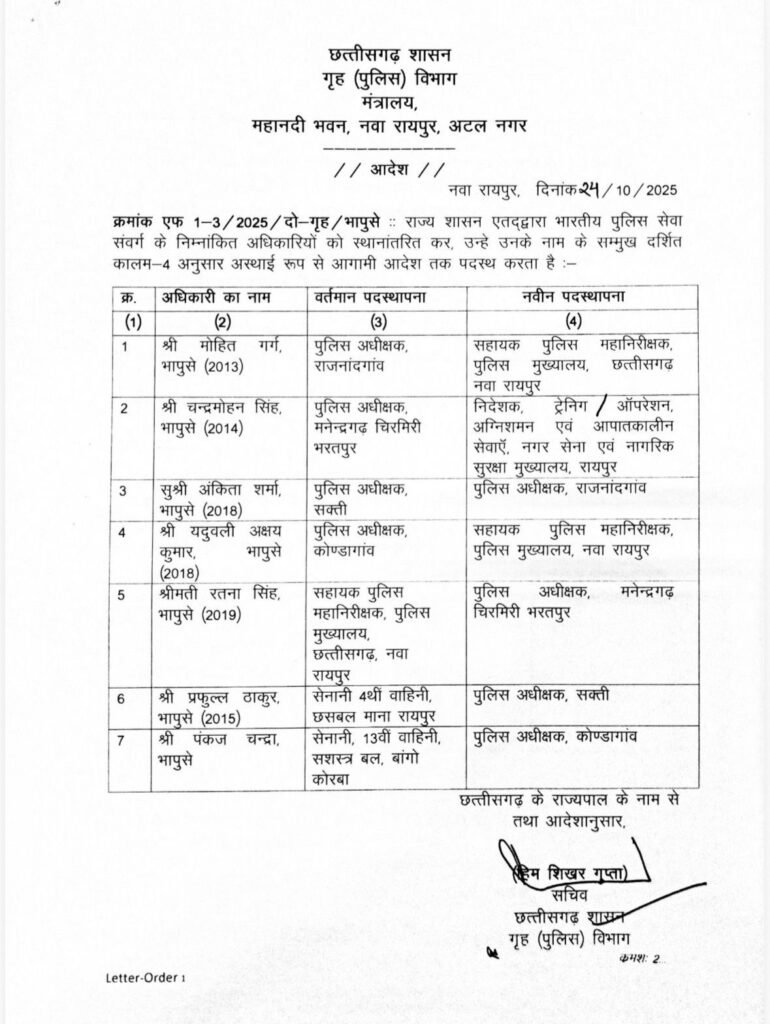 छत्तीसगढ़ शासन
गृह (पुलिस) विभाग
मंत्रालय,
महानदी भवन, नवा रायपुर, अटल नगर
-------------
// आदेश //
नवा रायपुर, दिनांक 24/10/2025
क्रमांक एफ 1-3/2025/दो-गृह/भापुसे :: राज्य शासन एतद्द्वारा भारतीय पुलिस सेवा
संवर्ग के निम्नांकित अधिकारियों को स्थानांतरित कर, उन्हे उनके नाम के सम्मुख दर्शित
कालम-4 अनुसार अस्थाई रूप से आगामी आदेश तक पदस्थ करता है :-
क्र. अधिकारी का नाम वर्तमान पदस्थापना नवीन पदस्थापना
(1) (2) (3) (4)
1 श्री मोहित गर्ग, पुलिस अधीक्षक, सहायक पुलिस महानिरीक्षक,
भापुसे (2013) राजनांदगांव पुलिस मुख्यालय, छत्तीसगढ़
नवा रायपुर
2 श्री चन्द्रमोहन सिंह, पुलिस अधीक्षक, निदेशक, ट्रेनिग / ऑपरेशन,
भापुसे (2014) मनेन्द्रगढ़ चिरमिरी अग्निशमन एवं आपातकालीन
भरतपुर सेवाऍ, नगर सेना एवं नागरिक
सुरक्षा मुख्यालय, रायपुर
3 सुश्री अंकिता शर्मा, पुलिस अधीक्षक, पुलिस अधीक्षक, राजनांदगांव
भापुसे (2018) सक्ती
4 श्री यदुवली अक्षय पुलिस अधीक्षक, सहायक पुलिस महानिरीक्षक,
कुमार, भापुसे कोण्डागांव पुलिस मुख्यालय, नवा रायपुर
(2018)
5 श्रीमती रतना सिंह, सहायक पुलिस पुलिस अधीक्षक, मनेन्द्रगढ़
भापुसे (2019) महानिरीक्षक, पुलिस चिरमिरी भरतपुर
मुख्यालय,
छत्तीसगढ़, नवा
रायपुर
6 श्री प्रफुल्ल ठाकुर, सेनानी 4थीं वाहिनी, पुलिस अधीक्षक, सक्ती
भापुसे (2015) छसबल माना रायपुर
7 श्री पंकज चन्द्रा, सेनानी, 13वीं वाहिनी, पुलिस अधीक्षक, कोण्डागांव
भापुसे सशस्त्र बल, बांगो
कोरबा
छत्तीसगढ़ के राज्यपाल के नाम से
तथा आदेशानुसार,
(हिम शिखर गुप्ता)
सचिव
छत्तीसगढ़ शासन
गृह (पुलिस) विभाग
क्रमशः 2...
Letter-Order 1